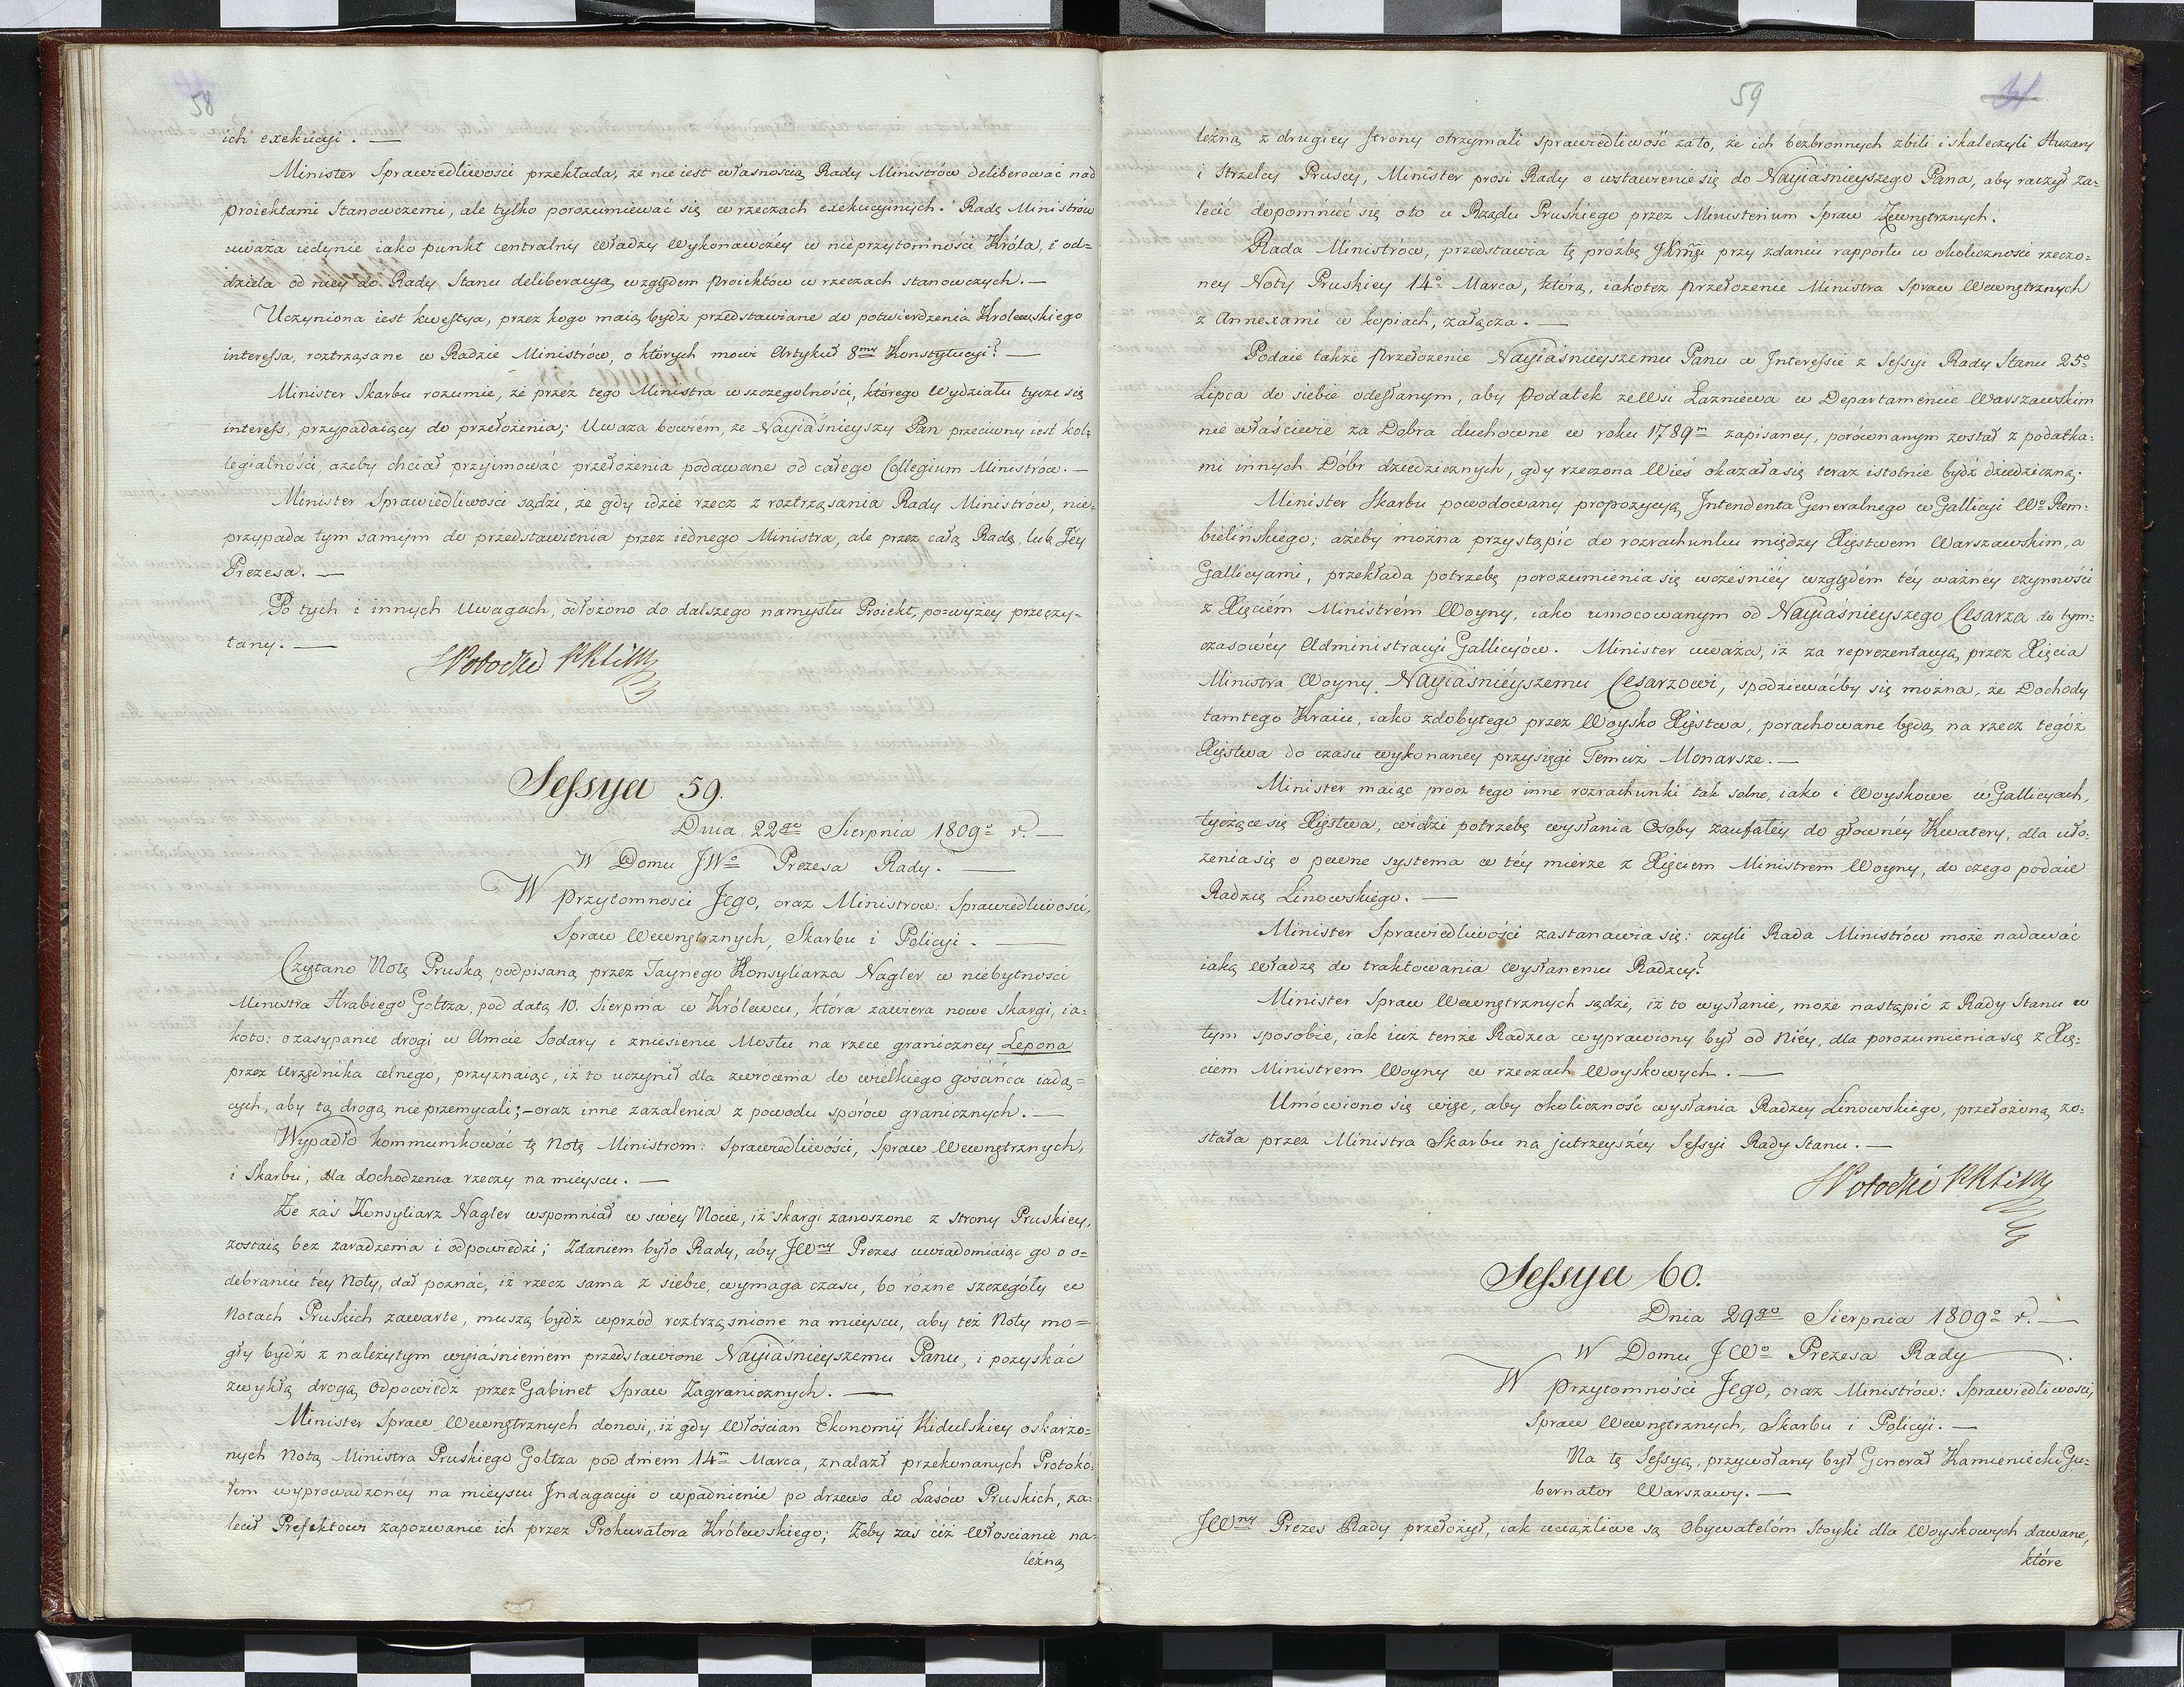 58
ich exekucyi. —
Minister Sprawiedliwości przekłada, że nie iest własnością Rady Ministrów deliberować nad
proiektami Stanowczemi, ale tylko porozumiewać się w rzeczach exekucyinych. Radę Ministrów
uważa iedynie iako punkt centralny władzy wykonawczéy w nieprzytomności Króla, i od=
dziela od niey do Rady Stanu deliberacyą względem proiektów w rzeczach stanowczych. —
Uczyniona iest kwestya, przez kogo maią bydź przedstawiane do potwierdzenia Krolewskiego
interessa, roztrząsane w Radzie Ministrów, o których mowi Artykuł 8my Konstytucyi? —
Minister Skarbu rozumie, że przez tego Ministra w szczegolności, którego Wydziału tycze się
interess, przypadaiący do przełożenia; Uważa bowiém, że Nayiaśnieyszy Pan przeciwny iest kol=
legialności, ażeby chciał przyimować przełożenia podawane od całego Collegium Ministrów. —
Minister Sprawiedliwości sądzi, że gdy idzie rzecz z roztrząsania Rady Ministrów, nie=
przypada tym samym do przedstawienia przez iednego Ministra, ale przez całą Radę, lub Jéy
Prezesa. —
Po tych i innych Uwagach, odłożono do dalszego namysłu Proiekt, po=wyżéy przeczy=
tany. —
SPotocki
Sessya 59.
Dnia 22go Sierpnia 1809o r. —
W Domu JWo Prezesa Rady. —
W przytomności Jego, oraz Ministrow: Sprawiedliwości,
Spraw Wewnętrznych, Skarbu i Policyi. —
Czytano Notę Pruską podpisaną przez Taynego Konsyliarza Nagler w niebytności
Ministra Hrabiego Goltza, pod datą 10. Sierpnia w Królewcu, która zawiera nowe skargi, ia=
koto: o zasypanie drogi w Amcie Sodary i zniesienie Mostu na rzece graniczney Lepona
przez Urzędnika celnego, przyznaiąc, iż to uczynił dla zwrócenia do wielkiego gościńca iadą=
cych, aby tą drogą nieprzemycali; – oraz inne zażalenia z powodu sporów granicznych. —
Wypadło kommunikować tę Notę Ministrom: Sprawiedliwości, Spraw Wewnętrznych,
i Skarbu, dla dochodzenia rzeczy na mieyscu. —
Że zaś Konsyliarz Nagler wspomniał w swéy Nocie, iż skargi zanoszone z strony Pruskiey,
zostaią bez zaradzenia i odpowiedzi; Zdaniem było Rady, aby JWny Prezes uwiadomiaiąc go o o=
debraniu téy Noty, dał poznać, iż rzecz sama z siebie, wymaga czasu, bo rózne szczegóły w
Notach Pruskich zawarte, muszą bydź wprzód roztrząśnione na mieyscu, aby też Noty mo=
gły bydź z należytym wyiaśnieniem przedstawione Nayiaśnieyszemu Panu, i pozyskać
zwykłą drogą Odpowiedz przez Gabinet Spraw Zagranicznych. —
Minister Spraw Wewnętrznych donosi, iż gdy Włościan Ekonomii Kidulskiey oskarżo=
nych Notą Ministra Pruskiego Goltza pod dniem 14m Marca, znalazł przekonanych Protokó=
łem wyprowadzonéy na mieyscu Jndagacyi o wpadnienie po drzewo do Lasów Pruskich, za=
lecił Prefektowi zapozwanie ich przez Prokuratora Królewskiego; Żeby zaś ciż Włościanie na=
leżną
59
leżną z drugiey strony otrzymali sprawiedliwość zato, że ich bezbronnych zbili i skaleczyli Huzary
i Strzelcy Pruscy, Minister prosi Rady o wstawienie się do Nayiaśnieyszego Pana, aby raczył za=
lecić dopomnieć się oto u Rządu Pruskiego przez Ministerium Spraw Zewnętrznych.
Rada Ministrów, przedstawia tę proźbę JKmći przy zdaniu rapportu w okoliczności rzeczo=
ney Noty Pruskiey 14o Marca, którą, iakoteż przełożenie Ministra Spraw Wewnętrznych
z Annexami w kopiach, załącza. —
Podaie także przełożenie Nayiaśnieyszemu Panu w Jnteressie z Sessyi Rady Stanu 25o
Lipca do siebie odesłanym, aby podatek ze Wsi Łazniewa w Departamencie Warszawskim
nie właściwie za Dobra duchowne w roku 1789m zapisaney, porównanym został z podatka=
mi innych Dóbr dziedzicznych, gdy rzeczona Wieś okazała się teraz istotnie bydź dziedziczną.
Minister Skarbu powodowany propozycyą Jntendenta Generalnego w Gallicyi Wo Rem=
bielińskiego; ażeby można przystąpić do rozrachunku między Xięstwem Warszawskim, a
Gallicyami, przekłada potrzebę porozumienia się wcześniéy względém téy ważnéy czynności
z Xięciém Ministrém Woyny, iako umocowanym od Nayiaśnieyszego Cesarza do tym=
czasowéy Administracyi Gallicyów. Minister uważa, iż za reprezentacyą przez Xięcia
Ministra Woyny Nayiaśniéyszemu Cesarzowi, spodziewaćby się można, że Dochody
tamtego Kraiu, iako zdobytego przez Woysko Xięstwa, porachowane będą na rzecz tegóż
Xięstwa do czasu wykonaney przysięgi Temuż Monarsze. —
Minister maiąc procz tego inne rozrachunki tak solne, iako i Woyskowe w Gallicyach,
tyczące się Xięstwa, widzi potrzebę wysłania Osoby zaufaléy do głownéy Kwatery, dla uło=
żenia się o pewne systema w téy mierze z Xięciem Ministrem Woyny, do czego podaie
Radzcę Linowskiego. —
Minister Sprawiedliwości zastanawia się: czyli Rada Ministrów może nadawać
iaką władzę do traktowania wysłanemu Radzcy?
Minister Spraw Wewnętrznych sądzi, iż to wysłanie, może nastąpić z Rady Stanu w
tym sposobie, iak iuż tenże Radzca wyprawiony był od Niéy, dla porozumienia się z Xię=
ciem Ministrem Woyny w rzeczach Woyskowych. —
Umówiono się więc, aby okoliczność wysłania Radzcy Linowskiego, przełożoną zo=
stała przez Ministra Skarbu na jutrzeyszéy Sessyi Rady Stanu. —
SPotocki
Sessya 60.
Dnia 29go Sierpnia 1809o r. —
W Domu JWo Prezesa Rady.
W przytomności Jego, oraz Ministrów: Sprawiedliwości,
Spraw Wewnętrznych, Skarbu i Policyi. —
Na tę Sessyą, przywołany był Generał Kamieniecki Gu=
bernator Warszawy. —
JWny Prezes Rady przełożył, iak uciążliwe są Obywatelóm Stoyki dla Woyskowych dawane,
które